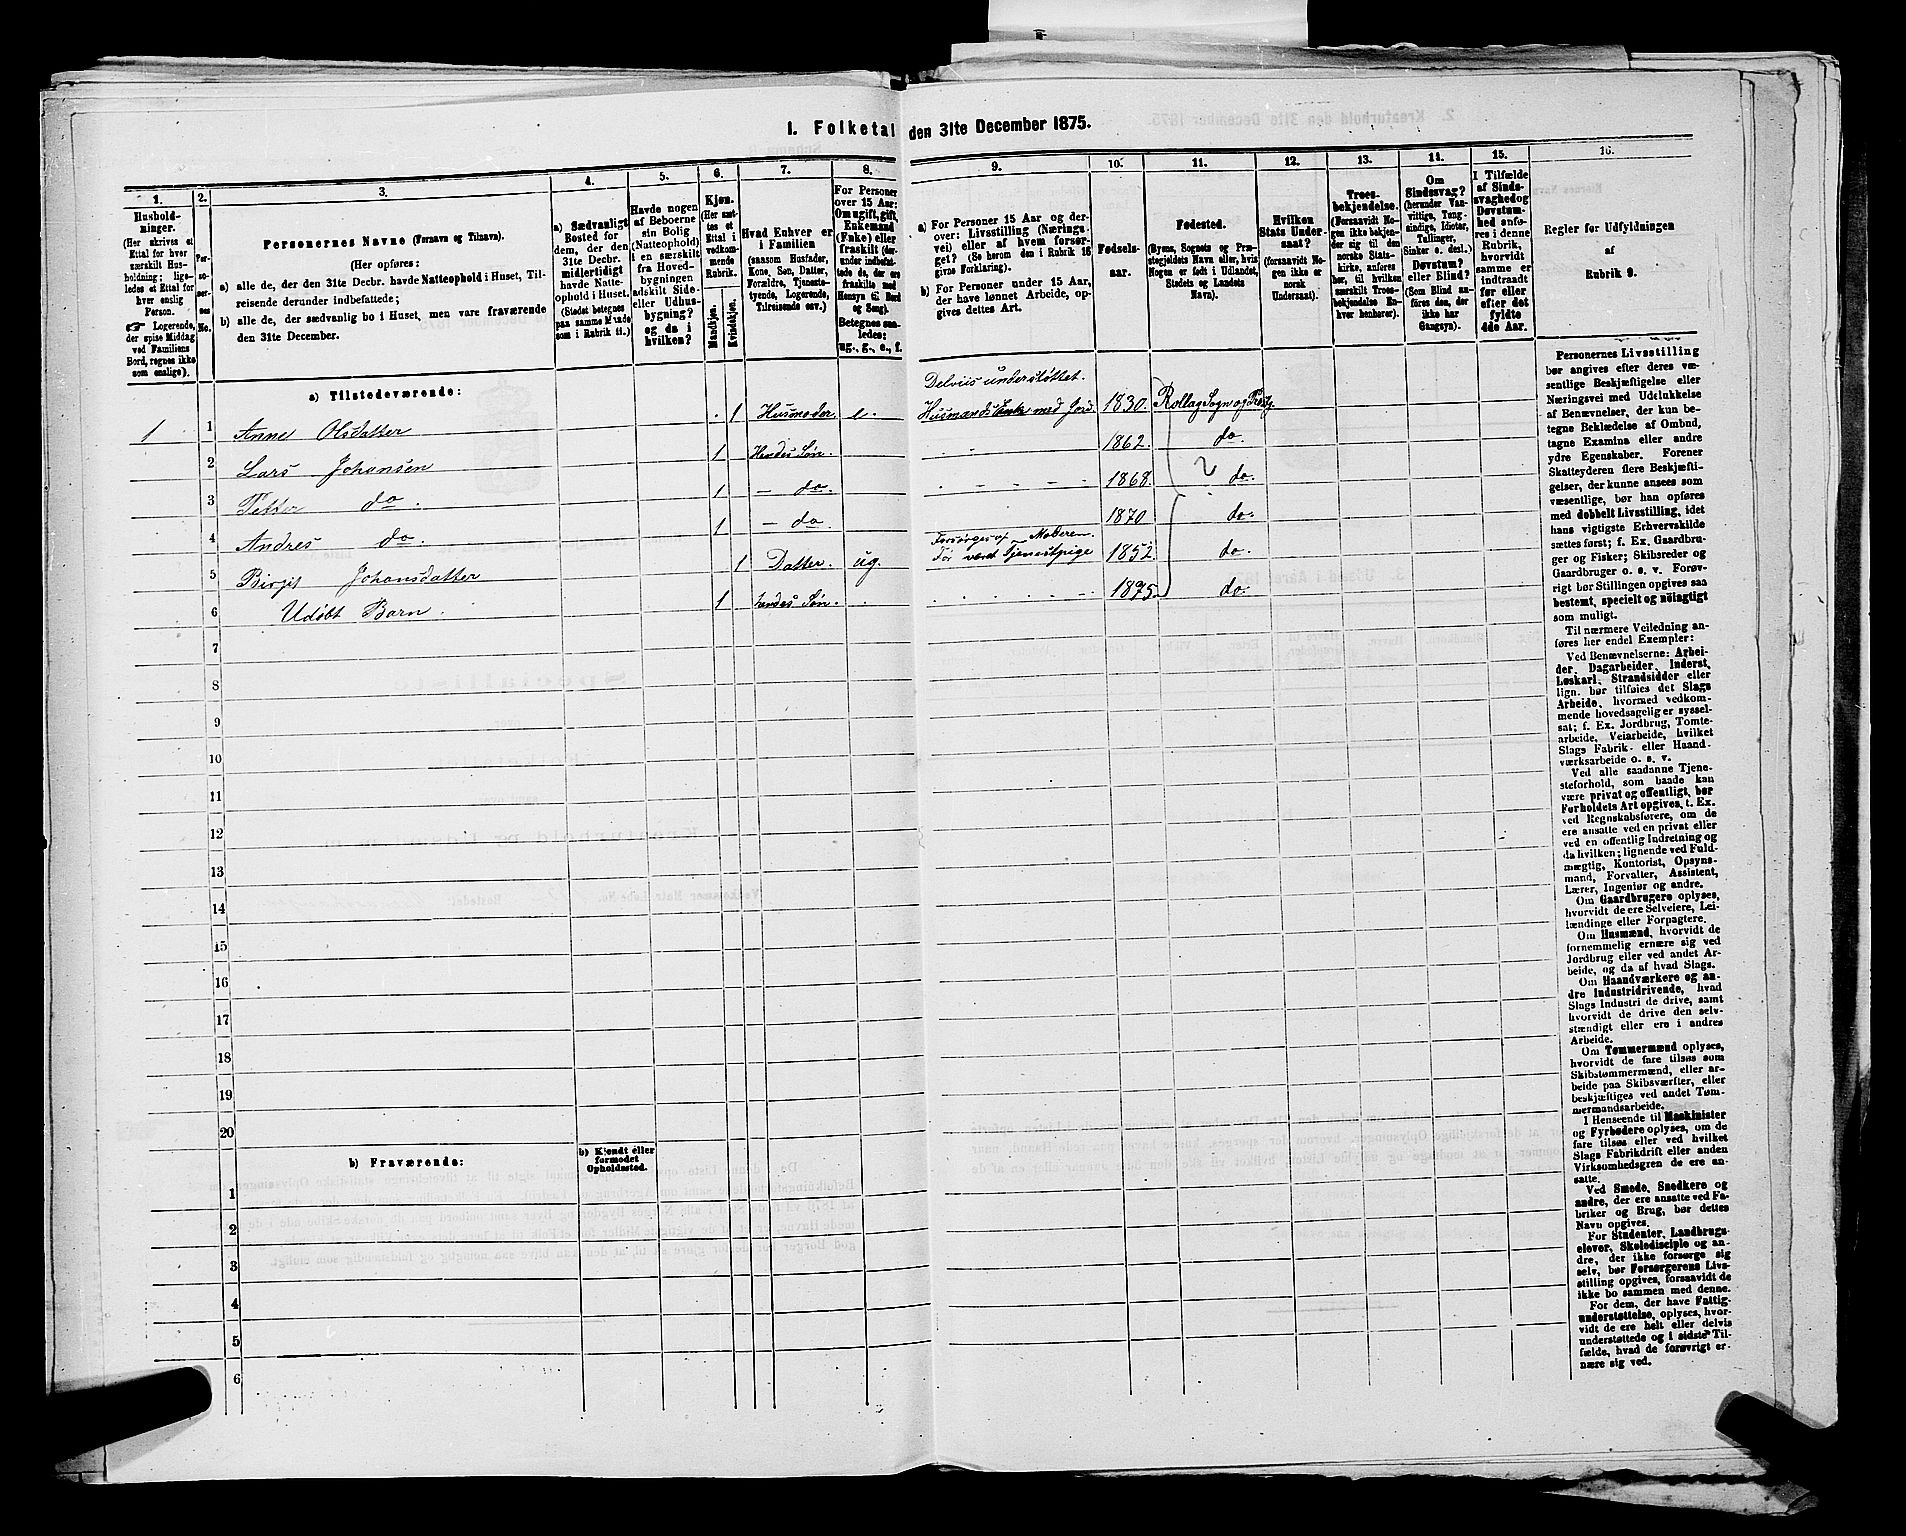 I. Folketal den 31te December 1875.
1.
Hushold-
ninger.
(Her skrives et
Ettal for hver
særskilt Hus-
holdning; lige-
ledes et Ettal for
hver enslig
Person.
☞ Logerende,
der spise Middag
ved Familiens
Bord, regnes ikke
som enslige).
2.
Per-
so-
ner-
nes
No.
3.
Personernes Navne (Fornavn og Tilnavn).
(Her opføres:
a) alle de, der den 31te Decbr. havde Natteophold i Huset, Til-
reisende derunder indbefattede;
b) alle de, der sædvanlig bo i Huset, men vare fraværende
den 31te December.
4.
a) Sædvanligt
Bosted for
dem, der den
31te Decbr.
midlertidigt
havde Natte-
ophold i Huset.
(Stedet betegnes
paa samme Maade
som i Rubrik 11.)
5.
Havde nogen
af Beboerne
sin Bolig
(Natteophold)
i en særskilt
fra Hoved-
bygningen
adskilt Side-
eller Udhus-
bygning?
og da i
hvilken?
6.
Kjøn.
(Her sæt-
tes et
Ettal i
vedkom-
mende
Rubrik.
Mandkjøn.
Kvindekjøn.
7.
Hvad Enhver er
i Familien
(saasom Husfader,
Kone, Søn, Datter,
Forældre, Tjeneste-
tyende, Logerende,
Tilreisende osv.)
8.
For Personer
over 15 Aar:
Om ugift, gift,
Enkemand
(Enke) eller
fraskilt (der-
under indbefat-
tede de, der ere
fraskilte med
Hensyn til Bord
og Seng).
Betegnes saa-
ledes:
ug., g., e., f.
9.
a) For Personer 15 Aar og der-
over: Livsstilling (Nærings-
vei) eller af hvem forsør-
get? (Se herom den i Rubrik 16
givne Forklaring).
b) For Personer under 15 Aar,
der have lønnet Arbeide, op-
gives dettes Art.
10.
Fødsels-
aar.
11.
Fødested.
(Byens, Sognets og Præ-
stegjeldets Navn eller, hvis
Nogen er født i Udlandet,
Stedets og Landets
Navn).
12.
Hvilken
Stats Under-
saat?
(forsaavidt No-
gen ikke er
norsk
Undersaat).
13.
Troes-
bekjendelse.
(Forsaavidt No-
gen ikke bekjen-
der sig til den
norske Stats-
kirke, anføres
her, til hvilken
særskilt Troes-
bekjendelse En-
hver henhører).
14.
Om
Sindssvag?
(herunder Van-
vittige, Tung-
sindige, Idioter,
Tullinger,
Sinker o. desl.)
Døvstum?
eller Blind?
(Som Blind an-
føres den, der
ikke har
Gangsyn).
15.
I Tilfælde
af Sinds-
svaghed og
Døvstum-
hed anfø-
res i denne
Rubrik,
hvorvidt
samme er
indtraadt
før eller
efter det
fyldte
4de Aar.
16.
Regler for Udfyldningen
af
Rubrik 9.
a) Tilstedeværende:
Delviis understøttet.
1 1 Anne Olsdatter 1 Husmoder e. Husmands Enke med Jord. 1830. Rollag Sogn og Prstg.
2 Lars Johansen 1 Hendes Søn 1862. do.
3 Petter do. 1 - do. 1868. do.
4 Andres do. 1 - do 1870 do.
Forsørges af Moderen.
5 Birgit Johansdatter 1 Datter. ug. Før været Tjenestpige 1852. do.
6 Udøbt Barn. 1 hendes Søn. 1875. do.
7
8
9
10
11
12
13
14
15
16
17
18
19
20
b) Fraværende:
b) Kjendt eller
formodet
Opholdssted.
1
2
3
4
5
6
Personernes Livsstilling
bør angives efter deres væ-
sentlige Beskjæftigelse eller
Næringsvei med Udelukkelse
af Benævnelser, der kun be-
tegne Beklædelse af Ombud,
tagne Examina eller andre
ydre Egenskaber. Forener
Skatteyderen flere Beskjæfti-
gelser, der kunne ansees som
væsentlige, bør han opføres
med dobbelt Livsstilling, idet
hans vigtigste Erhvervskilde
sættes først; f. Ex. Gaardbru-
ger og Fisker; Skibsreder og
Gaardbruger o. s. v. Forøv-
rigt bør Stillingen opgives saa
bestemt, specielt og nøiagtigt
som muligt.
Til nærmere Veiledning an-
føres her endel Exempler:
Ved Benævnelserne: Arbei-
der, Dagarbeider, Inderst,
Løskarl, Strandsidder eller
lign. bør tilføies det Slags
Arbeide, hvormed vedkom-
mende hovedsagelig er syssel-
sat; f. Ex. Jordbrug, Tomte-
arbeide, Veiarbeide, hvilket
Slags Fabrik- eller Haand-
værksarbeide o. s. v.
Ved alle saadanne Tjene-
steforhold, som baade kan
være privat og offentligt, bør
Forholdets Art opgives, t. Ex.
ved Regnskabsførere, om de
ere ansatte ved en privat eller
ved en offentlig Indretning og
da hvilken; lignende ved Fuld-
mægtig, Kontorist, Opsyns-
mand, Forvalter, Assistent,
Lærer, Ingeniør og andre.
Om Gaardbrugere oplyses,
hvorvidt de ere Selveiere, Lei-
lændinge eller Forpagtere.
Om Husmænd, hvorvidt de
fornemmelig ernære sig ved
Jordbrug eller ved andet Ar-
beide, og da af hvad Slags.
Om Haandværkere og an-
dre Industridrivende, hvad
Slags Industri de drive, samt
hvorvidt de drive den selv-
stændigt eller ere i andres
Arbeide.
Om Tømmermænd oplyses,
hvorvidt de fare tilsøs som
Skibstømmermænd, eller ar-
beide paa Skibsværfter, eller
beskjæftiges ved andet Tøm-
mermandsarbeide.
I Henseende til Maskinister
og Fyrbødere oplyses, om de
fare tilsøs eller ved hvilket
Slags Fabrikdrift eller anden
Virksomhedsgren de ere an-
satte.
Ved Smede, Snedkere og
andre, der ere ansatte ved Fa-
briker og Brug, bør dettes
Navn opgives.
For Studenter, Landbrugs-
elever, Skoledisciple og an-
dre, der ikke forsørge sig
selv, bør Forsørgerens Livs-
stilling opgives, forsaavidt de
ikke bo sammen med denne.
For dem, der have Fattig-
understøttelse, oplyses, hvor-
vidt de ere helt eller delvis
understøttede og i sidste Til-
fælde, hvad de forøvrigt er-
nære sig ved.